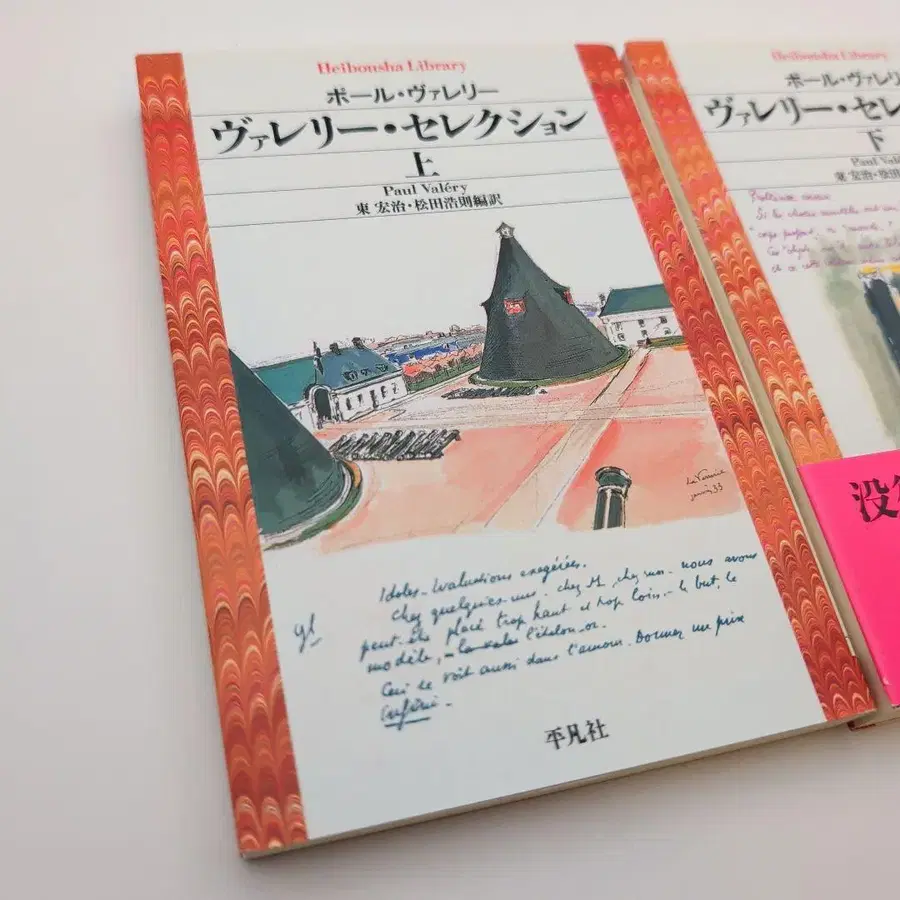 Heibonsha Library
ポール・ヴァレリー
ヴァレリー・セレクション
上
Paul Valéry
東 宏治・松田浩則編訳
Idoles - Evaluations exagérées.
Chez quelques-uns - chez M, chez moi - nous avons
peut-être placé trop haut et trop loin - le but, le
modèle, - l'étalon-or.
Ceci se voit aussi dans l'amour. Donner un prix
infini -
平凡社
Heibonsha Library
ポール・ヴァレリ
ヴァレリー・セレ
下
Paul Valé
東 宏治・松田
没